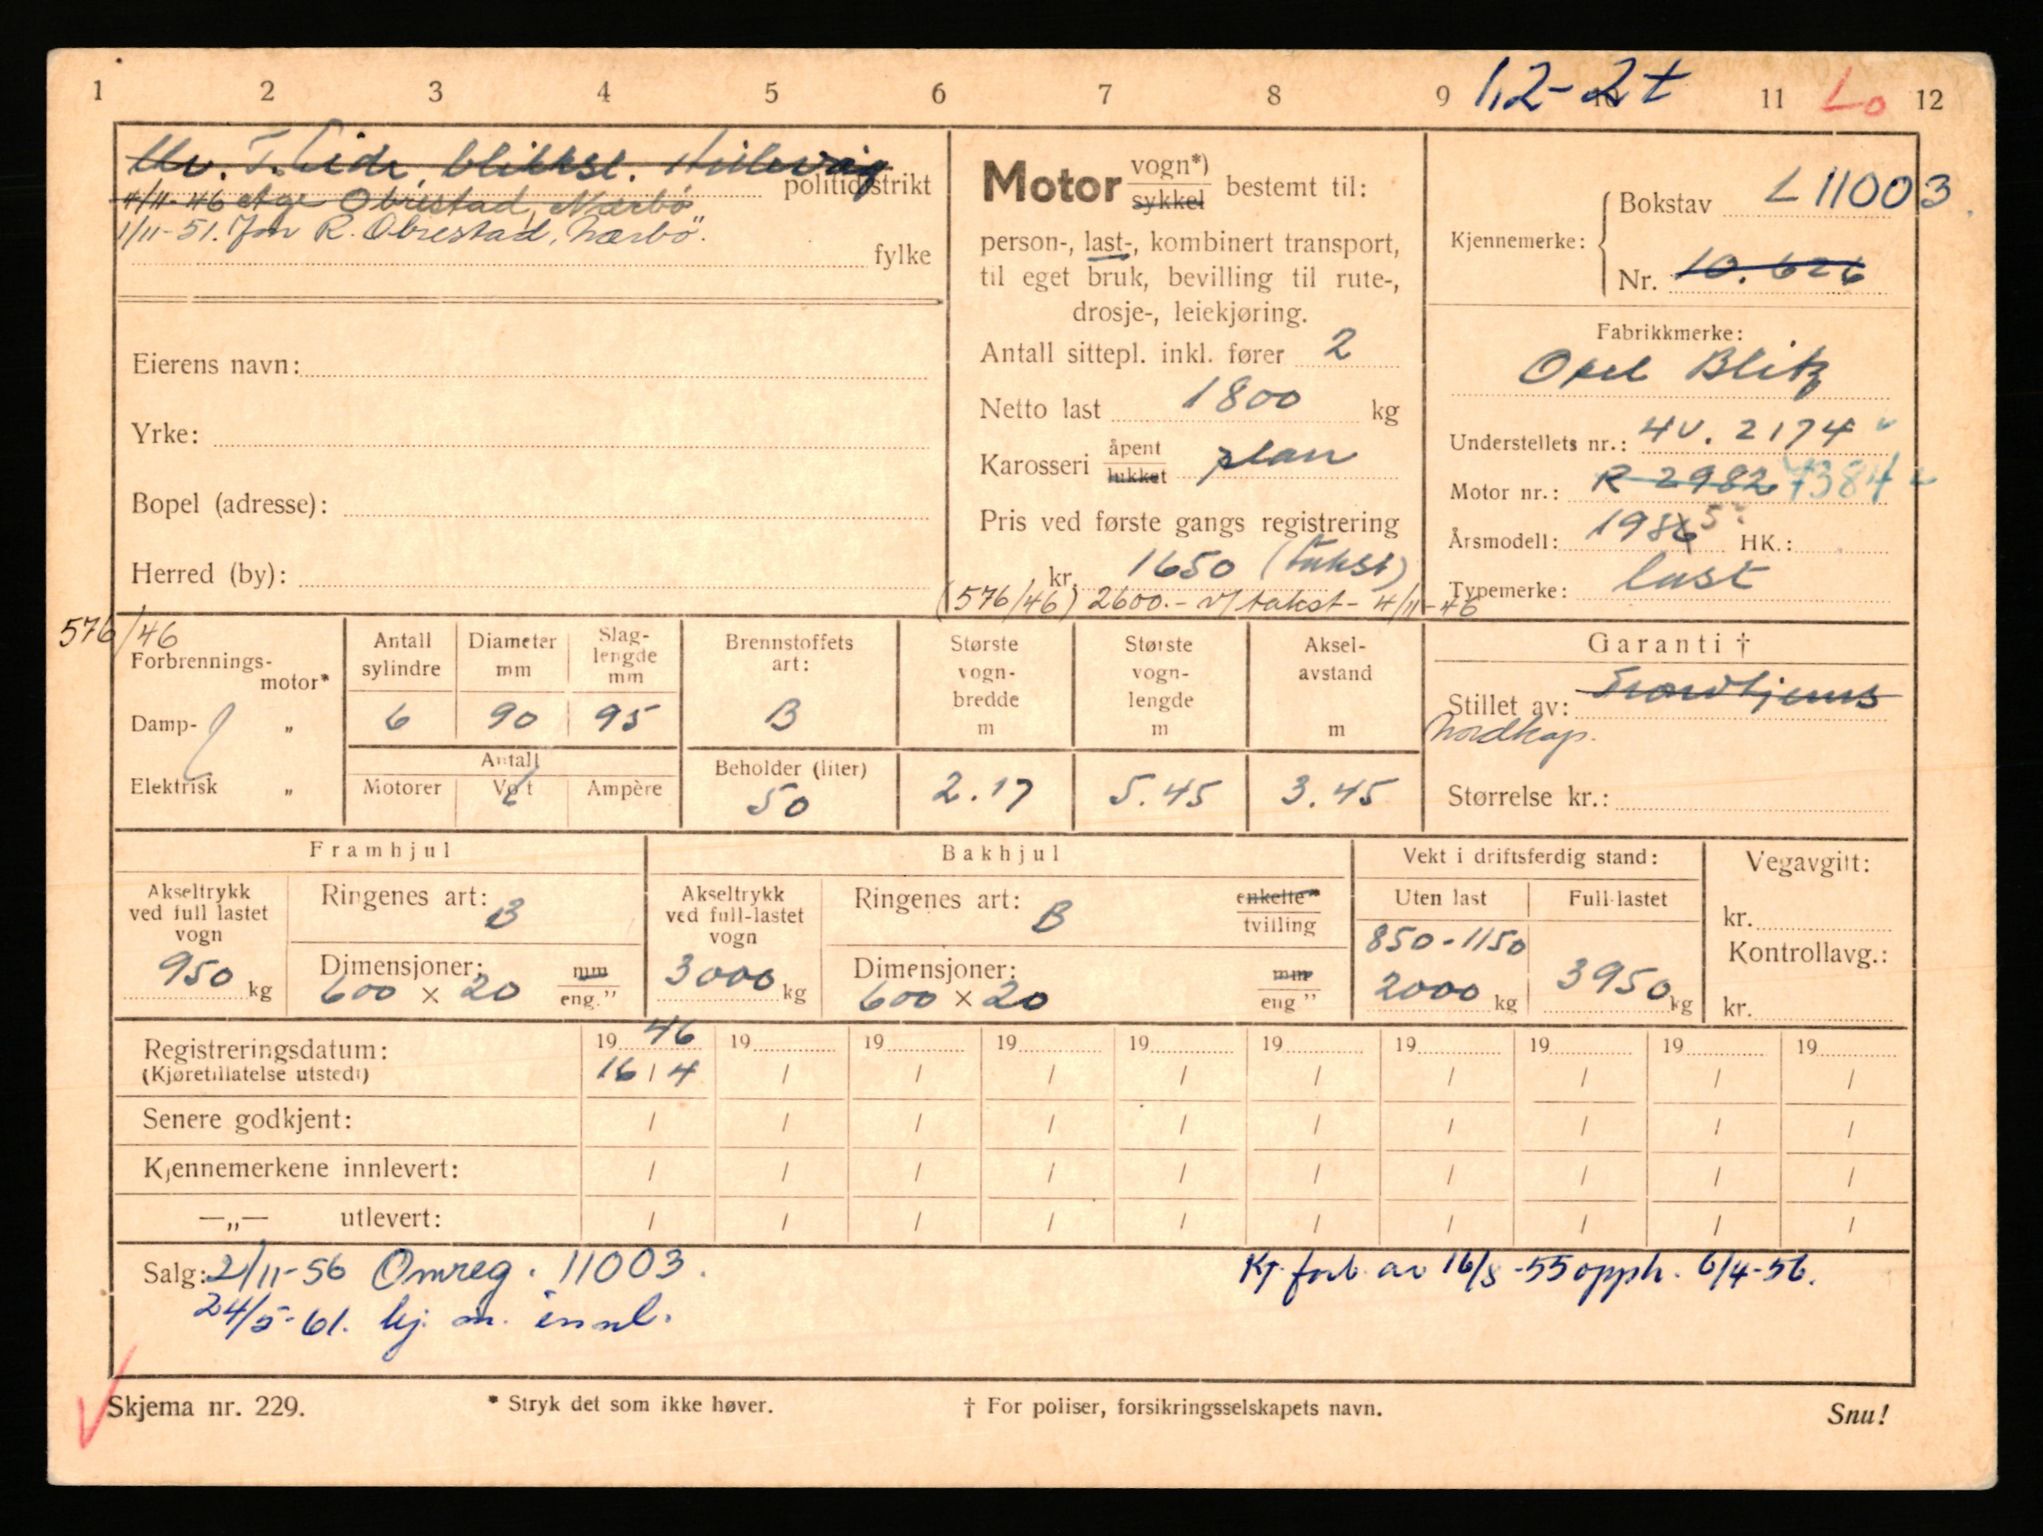 1 2 3 4 5 6 7 8 9 10 11 12
1,2-2t
Lo
politidistrikt
4/11-46 Age Obrestad, Nærbö
1/11-51. Jon R. Obrestad, Nærbö.
fylke
Eierens navn:
Yrke:
Bopel (adresse):
Herred (by):
Motor vogn*) sykkel bestemt til:
person-, last-, kombinert transport,
til eget bruk, bevilling til rute-,
drosje-, leiekjøring.
Antall sittepl. inkl. fører 2
Netto last 1800 kg
Karosseri åpent lukket plan
Pris ved første gangs registrering
kr. 1650 (takst)
(576/46) 2600.- v/ takst - 4/11-46
Kjennemerke: Bokstav L 11003
Nr. 10.626
Fabrikkmerke:
Opel Blitz
Understellets nr.: 4U. 2174
Motor nr.: R 2982 7384
Årsmodell: 1936 5 HK.:
Typemerke: last
576/46
Forbrennings-
motor*
Damp- „
Elektrisk „
Antall sylindre 6
Diameter mm 90
Slag-lengde mm 95
Antall
Motorer Volt Ampère
Brennstoffets art: B
Beholder (liter) 50
Største vogn-bredde m 2.17
Største vogn-lengde m 5.45
Aksel-avstand m 3.45
Garanti †
Stillet av:
Nordkap.
Størrelse kr.:
Framhjul
Akseltrykk ved full lastet vogn 950 kg
Ringenes art: B
Dimensjoner: 600 x 20 mm eng."
Bakhjul
Akseltrykk ved full-lastet vogn 3000 kg
Ringenes art: B enkelte* tvilling
Dimensjoner: 600 x 20 mm eng"
Vekt i driftsferdig stand:
Uten last Full-lastet
850-1150
2000 kg 3950 kg
Vegavgift:
kr.
Kontrollavg.:
kr.
Registreringsdatum: 19 46 19 19 19 19 19 19 19 19 19
(Kjøretillatelse utstedt) 16 / 4 / / / / / / / / /
Senere godkjent: / / / / / / / / / /
Kjennemerkene innlevert: / / / / / / / / / /
—„— utlevert: / / / / / / / / / /
Salg: 21/11-56 Omreg. 11003.
Kj. forb. av 16/8-55 opph. 6/4-56.
24/5-61. kj. m. innl.
Skjema nr. 229.
* Stryk det som ikke høver.
† For poliser, forsikringsselskapets navn.
Snu!